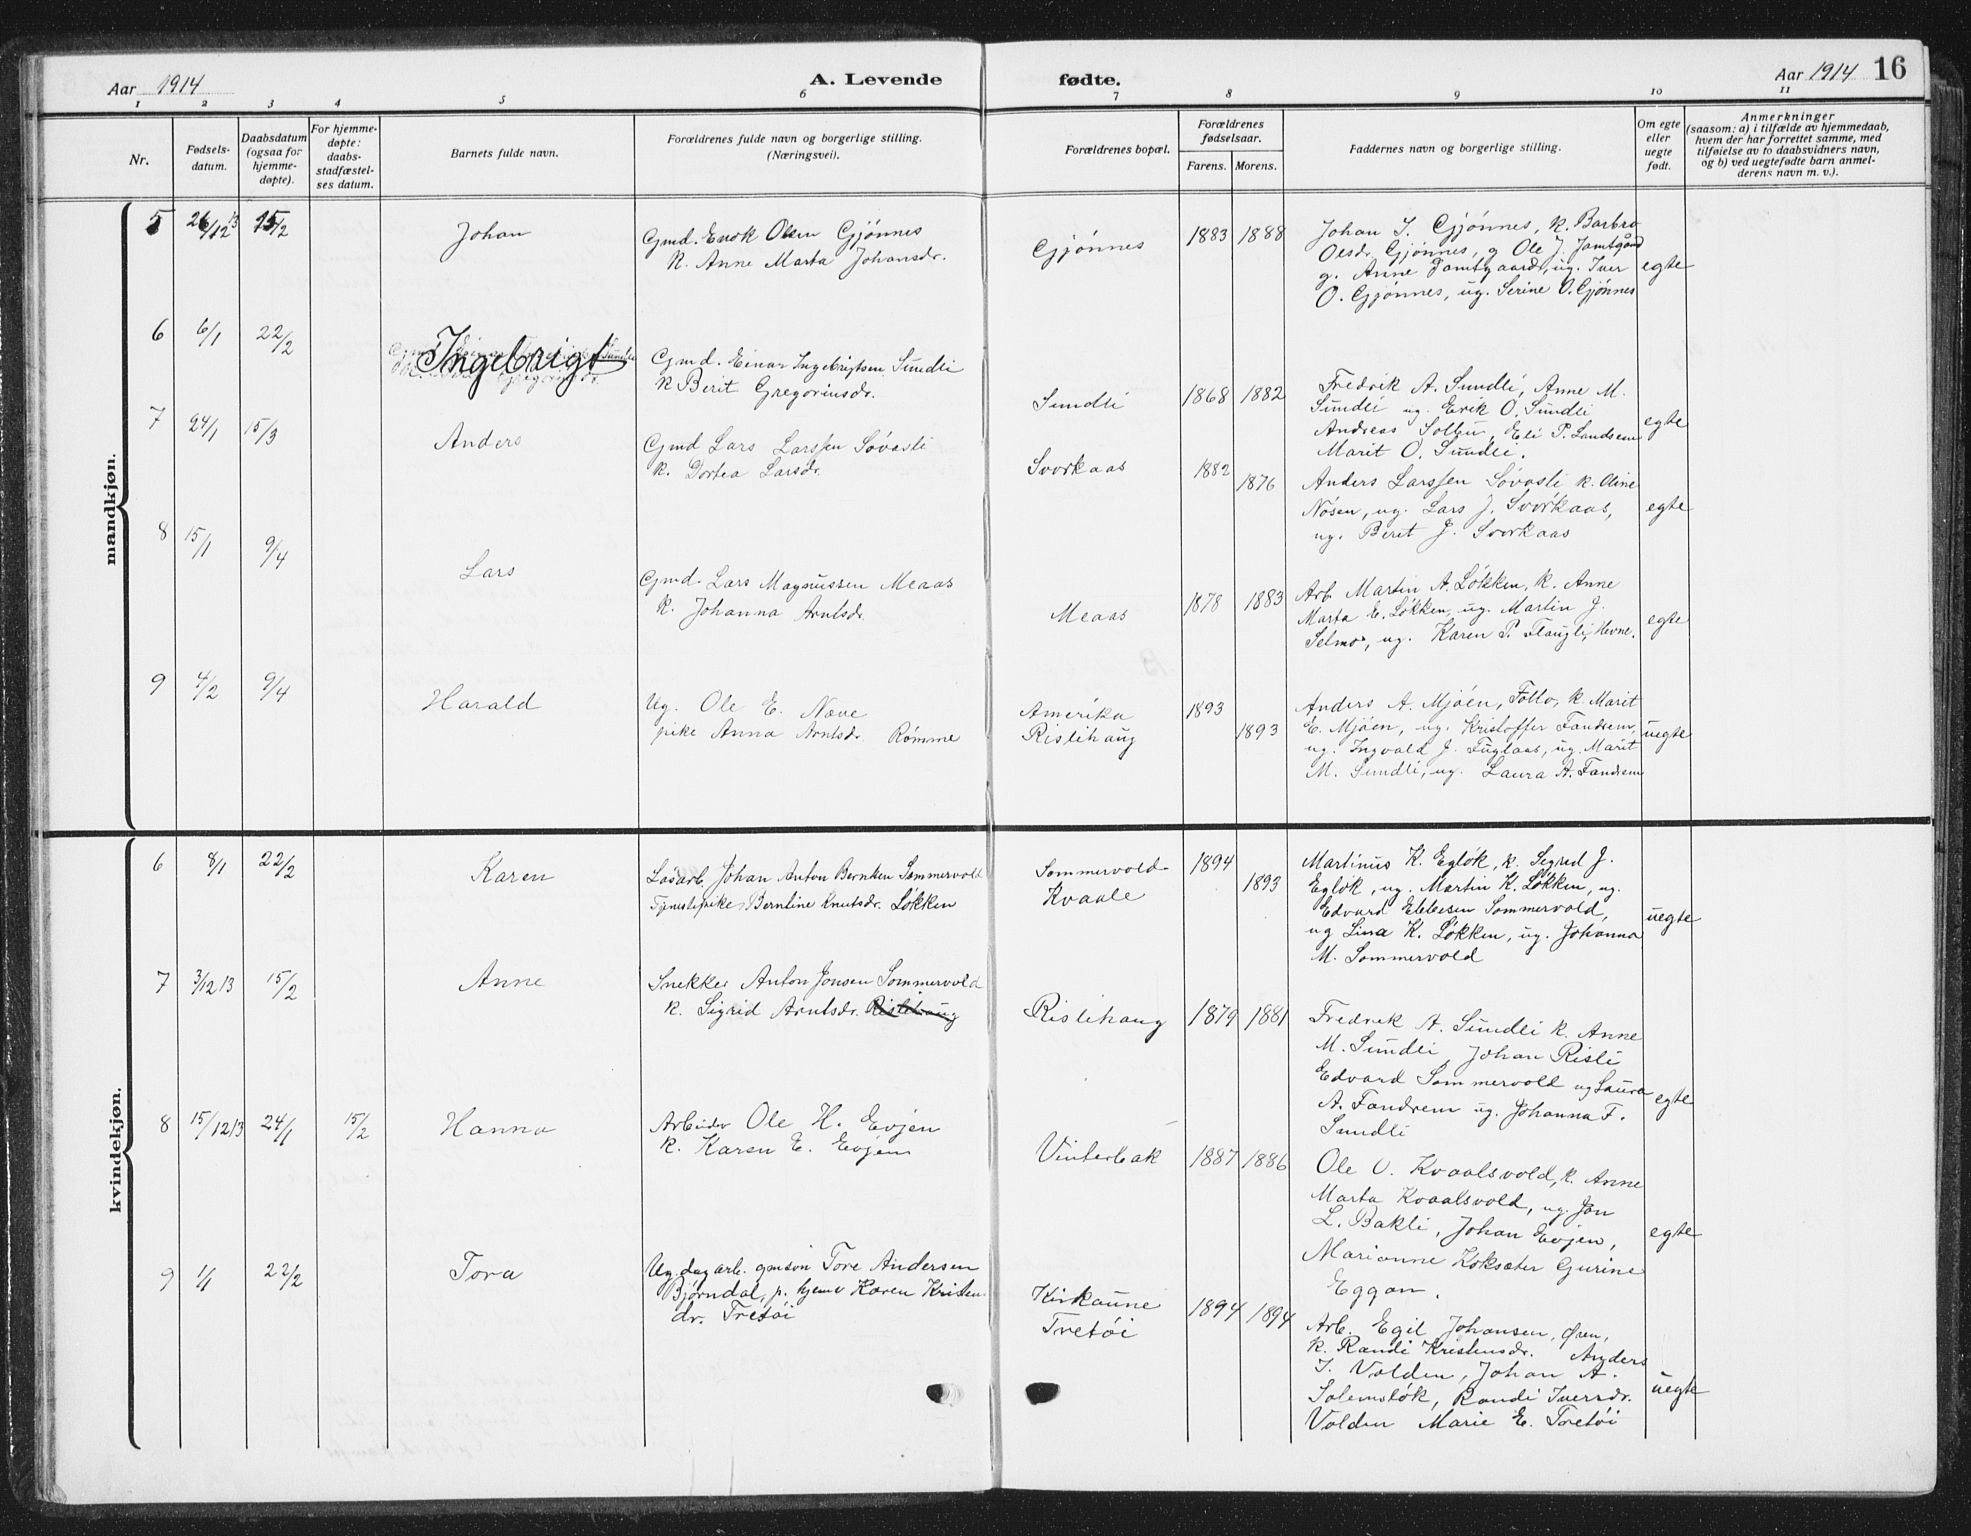 Aar 1914
A. Levende fødte.
Aar 1914 16
1 2 3 4 5 6 7 8 9 10 11
Nr.
Fødsels-
datum.
Daabsdatum
(ogsaa for
hjemme-
døpte).
For hjemme-
døpte:
daabs-
stadfæstel-
ses datum.
Barnets fulde navn.
Forældrenes fulde navn og borgerlige stilling.
(Næringsvei).
Forældrenes bopæl.
Forældrenes
fødselsaar.
Farens. Morens.
Faddernes navn og borgerlige stilling.
Om egte
eller
uegte
født.
Anmerkninger
(saasom: a) i tilfælde av hjemmedaab,
hvem der har forrettet samme, med
tilføielse av to daabsvidners navn,
og b) ved uegtefødte barn anmel-
derens navn m. v.).
mandkjøn.
5 26/12 13 15/2
Johan
Gmd. Enok Olsen Gjønnes
k. Anne Marta Johansdr.
Gjønnes
1883 1888
Johan I. Gjønnes, k. Barbro
Olesdr. Gjønnes, g Ole J. Jamtgård
g. Anne Jamtgaard, ug. Iver
O. Gjønnes, ug. Serine O. Gjønnes
egte
6 6/1 22/2
Ingebrigt
Gmd. Einar Ingebrigtsen Sundli
k Berit Gregoriusdr.
Sundli
1868 1882
Fredrik A. Sundli, Anne M.
Sundli ug. Erik O. Sundli
Andreas Solbu, Eli P. Landsem
Marit O. Sundli.
egte
7 24/1 15/3
Anders
Gmd Lars Larssen Søvasli
k. Dortea Larsdr.
Svorkaas
1882 1876
Anders Larssen Søvasli k. Oline
Nøsen, ug. Lars J. Svorkaas,
ug. Berit J. Svorkaas
egte
8 15/1 9/4
Lars
Gmd. Lars Magnussen Meaas
k. Johanna Arntsdr.
Meaas
1878 1883
Arb. Martin A. Løkken, k. Anne
Marta E. Løkken, ug. Martin J.
Selmo, ug. Karen P. Flaugli, Hevne.
egte
9 4/2 9/4
Harald
Ug. Ole E. Næve
pike Anna Arntsdr. Rømme
Amerika
Rislihaug
1893
1893
Anders A. Mjøen, Follo, k. Marit
E. Mjøen, ug. Kristoffer Fandrem,
ug. Ingvald J. Fuglaas, ug. Marit
M. Sundli, ug. Laura A. Fandrem
uegte
kvindekjøn.
6 8/1 22/2
Karen
Løsarb. Johan Anton Berntsen Sommervold
Tjenestepike Berntine Knutsdr. Løkken
Sommervold
Kvaale
1894
1893
Martinus K. Egløk, k. Sigrid J.
Egløk, ug. Martin K. Løkken, ug.
Edvard Ebbesen Sommervold,
ug Lina K. Løkken, ug. Johanna
M. Sommervold
uegte
7 3/12 13 15/2
Anne
Snekker Anton Jonsen Sommervold
k. Sigrid Arntsdr. Rislihaug
Rislihaug
1879 1881
Fredrik A. Sundli k. Anne
M. Sundli, Johan Risli
Edvard Sommervold ug Laura
A. Fandrem ug. Johanna F.
Sundli
egte
8 15/12 13 24/1 15/2
Hanna
Arbeider Ole H. Evjen
k. Karen E. Evjen
Vinterbak
1887 1886
Ole O. Kvaalsvold, k. Anne
Marta Kvaalsvold, ug. Jon
L. Bakli, Johan Evjen,
Marianne Koksæter Gurine
Eggan.
egte
9 1/1 22/2
Tora
Ug. dagarb. gmsøn Tore Andersen
Bjørndal, p. hjemv Karen Kristen
dr. Tretøi
Kirkaune
Tretøi
1894 1894
Arb. Egil Johansen, Øien,
k. Randi Kristensdr. Anders
I. Volden, Johan A.
Solemsløk, Randi Iversdr.
Volden Marie E. Tretøi
uegte